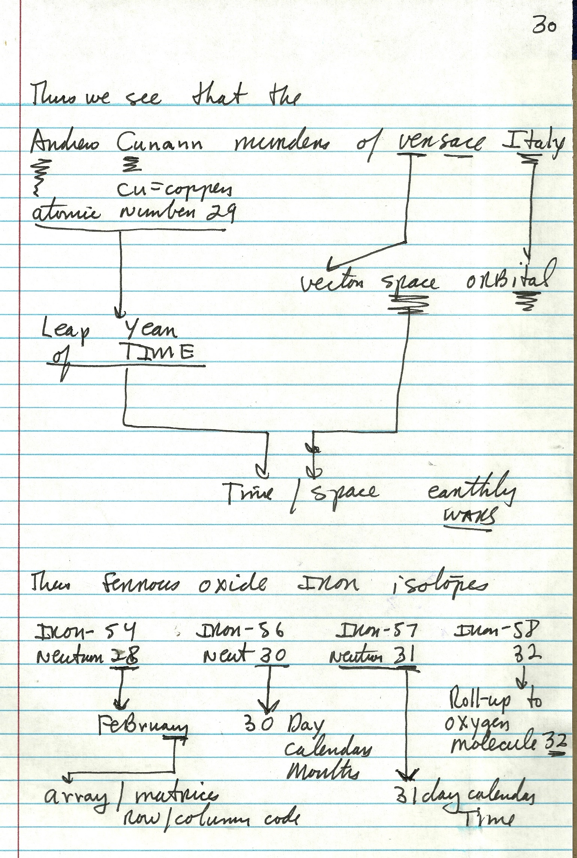 30
Thus we see that the
Andrew Cunann murders of versace Italy
cu=copper
atomic number 29
vector space orBital
Leap Year
of TIME
Time / space earthly
WARS
Thus ferrous oxide Iron isotopes
Iron-54 Iron-56 Iron-57 Iron-58
Neutrum 28 Neut 30 Neutrum 31 32
Roll-up to
oxygen
molecule 32
February 30 Day
calendar
Months
array / matrices
row/column code
31 day calendar
Time